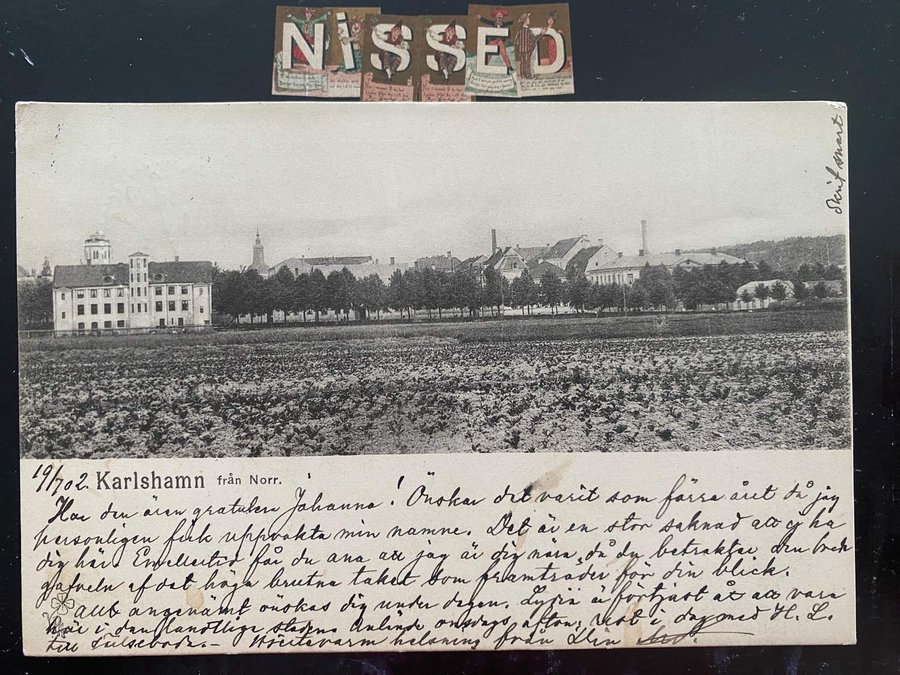 NISSED
Skrif snart
19/7 02. Karlshamn från Norr.
Har den äran gratulera Johanna! Önskar det varit som förra året då jag
personligen fick uppvakta min namne. Det är en stor saknad att ej ha
dig här. Emellertid får du ana att jag är dig nära, då du betraktar den
gafveln af det höga brutna taket som framträder för din blick.
allt angenämt önskas dig under dagen. är förtjust åt att vara
här i den landtliga staden. onsdags afton, i dag med H. L.
till - helsning från Din